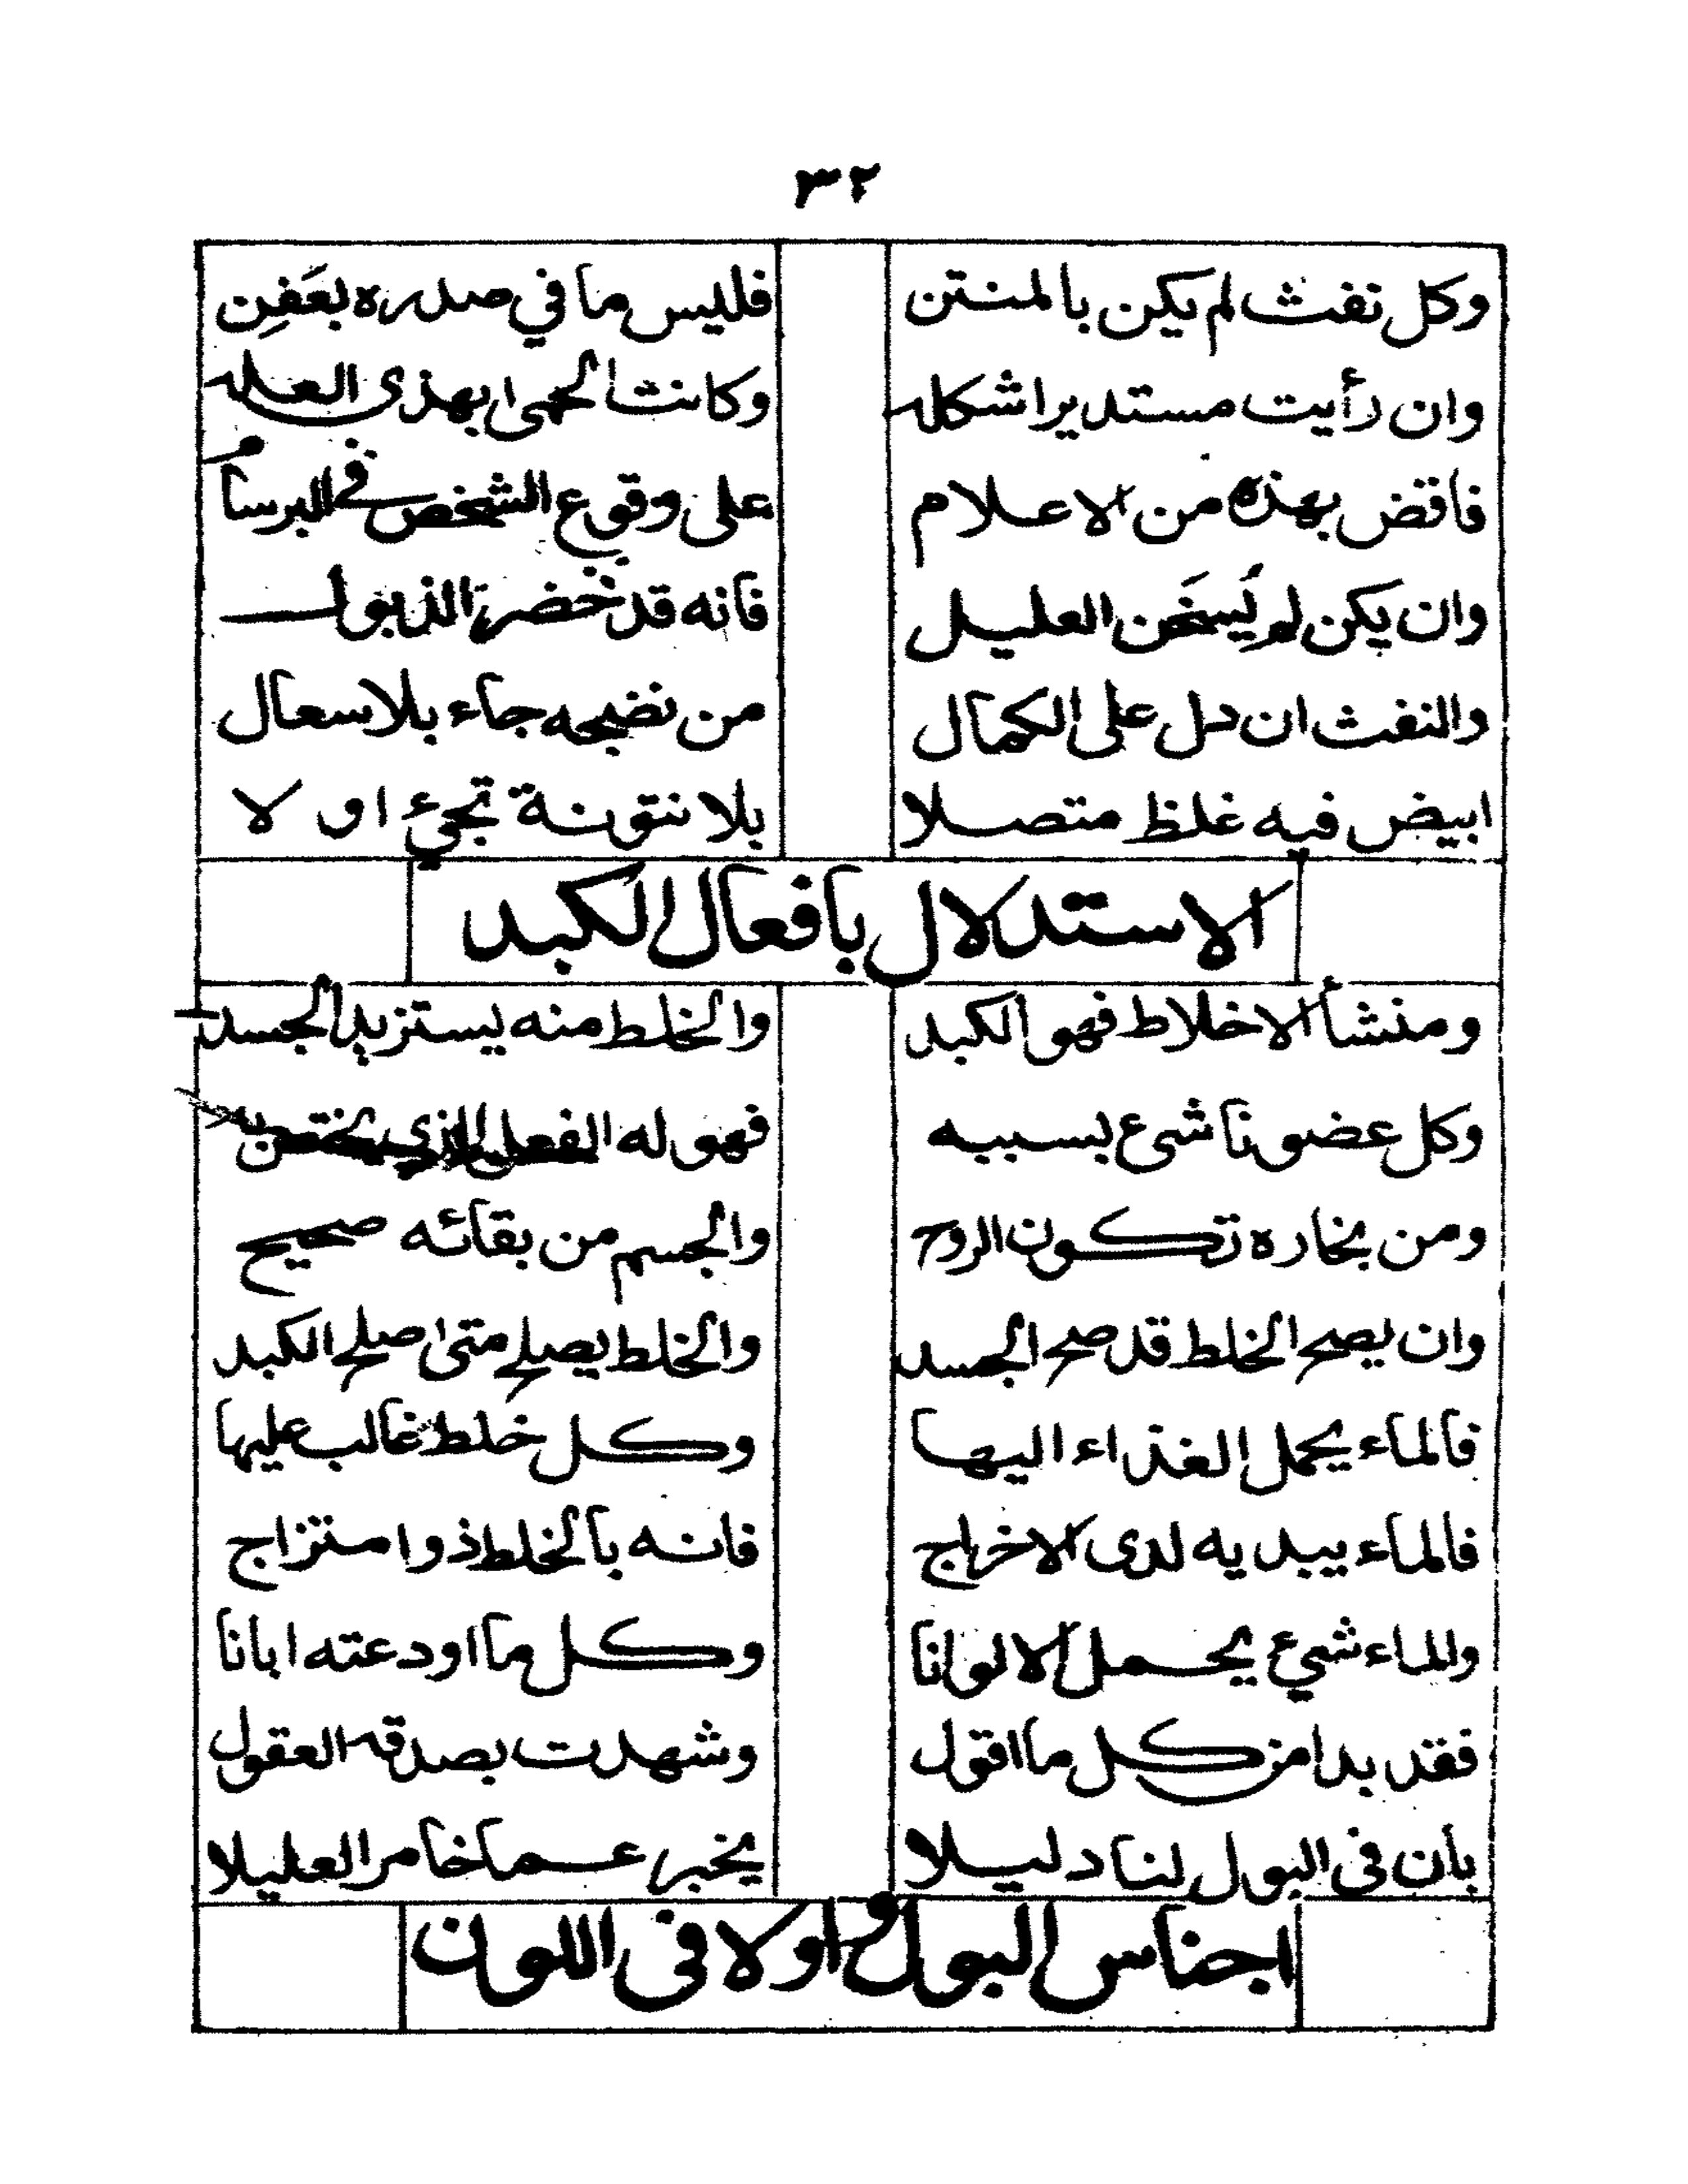 ٣٢
وكل نفث لم يكن بالمنتن فليس ما في صدره بعَفِن
وان رأيت مستديرا شكله وكانت الحمى بهذي العله
فاقض بهذه من الاعلام على وقوع الشخص في البرسام
وان يكن لم يسخَن العليل فانه قد خضرة الذبول
والنفث ان دل على الكمال من نضجه جاء بلا سعال
ابيض فيه غلظ متصلا بلا نتونة تجيء او لا
الاستدلال بافعال الكبد
ومنشأ الاخلاط فهو الكبد والخلط منه يستزيد الجسد
وكل عضو ناشئ بسببه فهو له الفعل الذي يختص به
ومن بخاره تكون الروح والجسم من بقائه صحيح
وان يصح الخلط قد صح الجسد والخلط يصلح متى اصلح الكبد
فالماء يحمل الغذاء اليها وكل خلط غالب عليها
فالماء يبديه لدى الاخراج فانه بالخلط ذو امتزاج
والماء شيء يحمل الالوانا وكل ما اودعته ابانا
فقد بدا من كل ما اقول وشهدت بصدقه العقول
بأن في البول لنا دليلا يخبر عما خامر العليلا
اجناس البول واولا في اللون